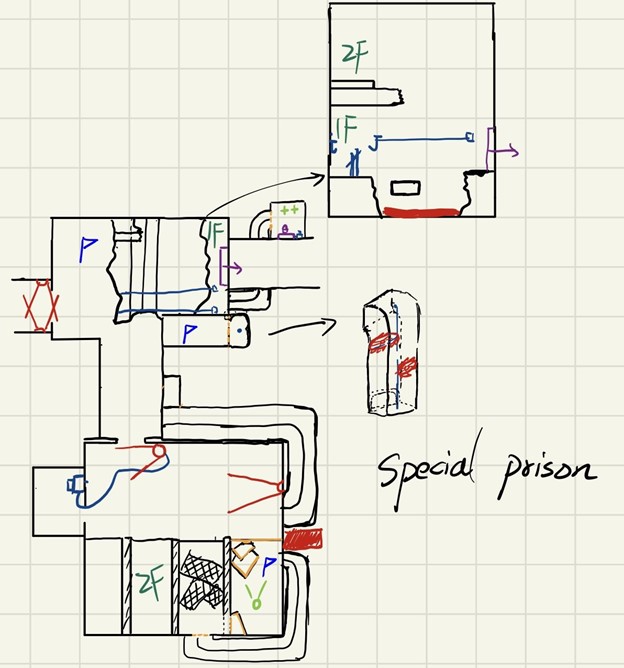 2F
1F
++
1F
P
P
special prison
2F
P